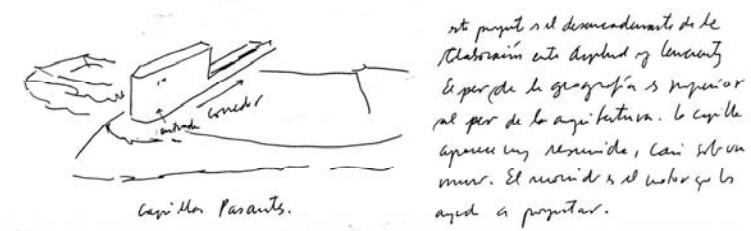 entrada
corredor
Capillas Pasantes.
este proyecto es el desencadenante de la
El peso de la geografía es superior
al peso de la arquitectura. La capilla
aparece muy resumida, casi sobre un
muro. El recorrido es el motor que los
ayuda a proyectar.